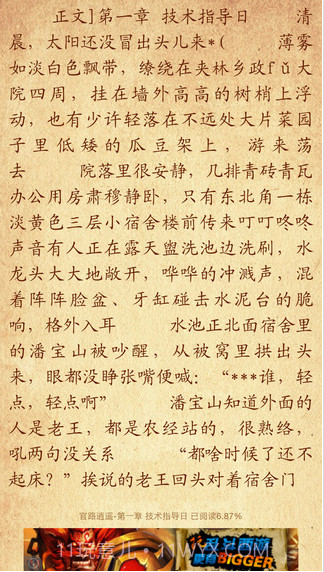 正文]第一章 技术指导日 清
晨，太阳还没冒出头儿来*( 薄雾
如淡白色飘带，缭绕在夹林乡政fǔ大
院四周，挂在墙外高高的树梢上浮
动，也有少许轻落在不远处大片菜园
子里低矮的瓜豆架上，游来荡
去 院落里很安静，几排青砖青瓦
办公用房肃穆静卧，只有东北角一栋
淡黄色三层小宿舍楼前传来叮叮咚咚
声音有人正在露天盥洗池边洗刷，水
龙头大大地敞开，哗哗的冲溅声，混
着阵阵脸盆、牙缸碰去水泥台的脆
响，格外入耳 水池正北面宿舍里
的潘宝山被吵醒，从被窝里拱出头
来，眼都没睁张嘴便喊：“***谁，轻
点，轻点啊” 潘宝山知道外面的
人是老王，都是农经站的，很熟络，
吼两句没关系 “都啥时候了还不
起床？”挨说的老王回头对着宿舍门
官路逍遥-第一章 技术指导日 已阅读6.87%
11玩意儿·11WYX.COM
BIGGER